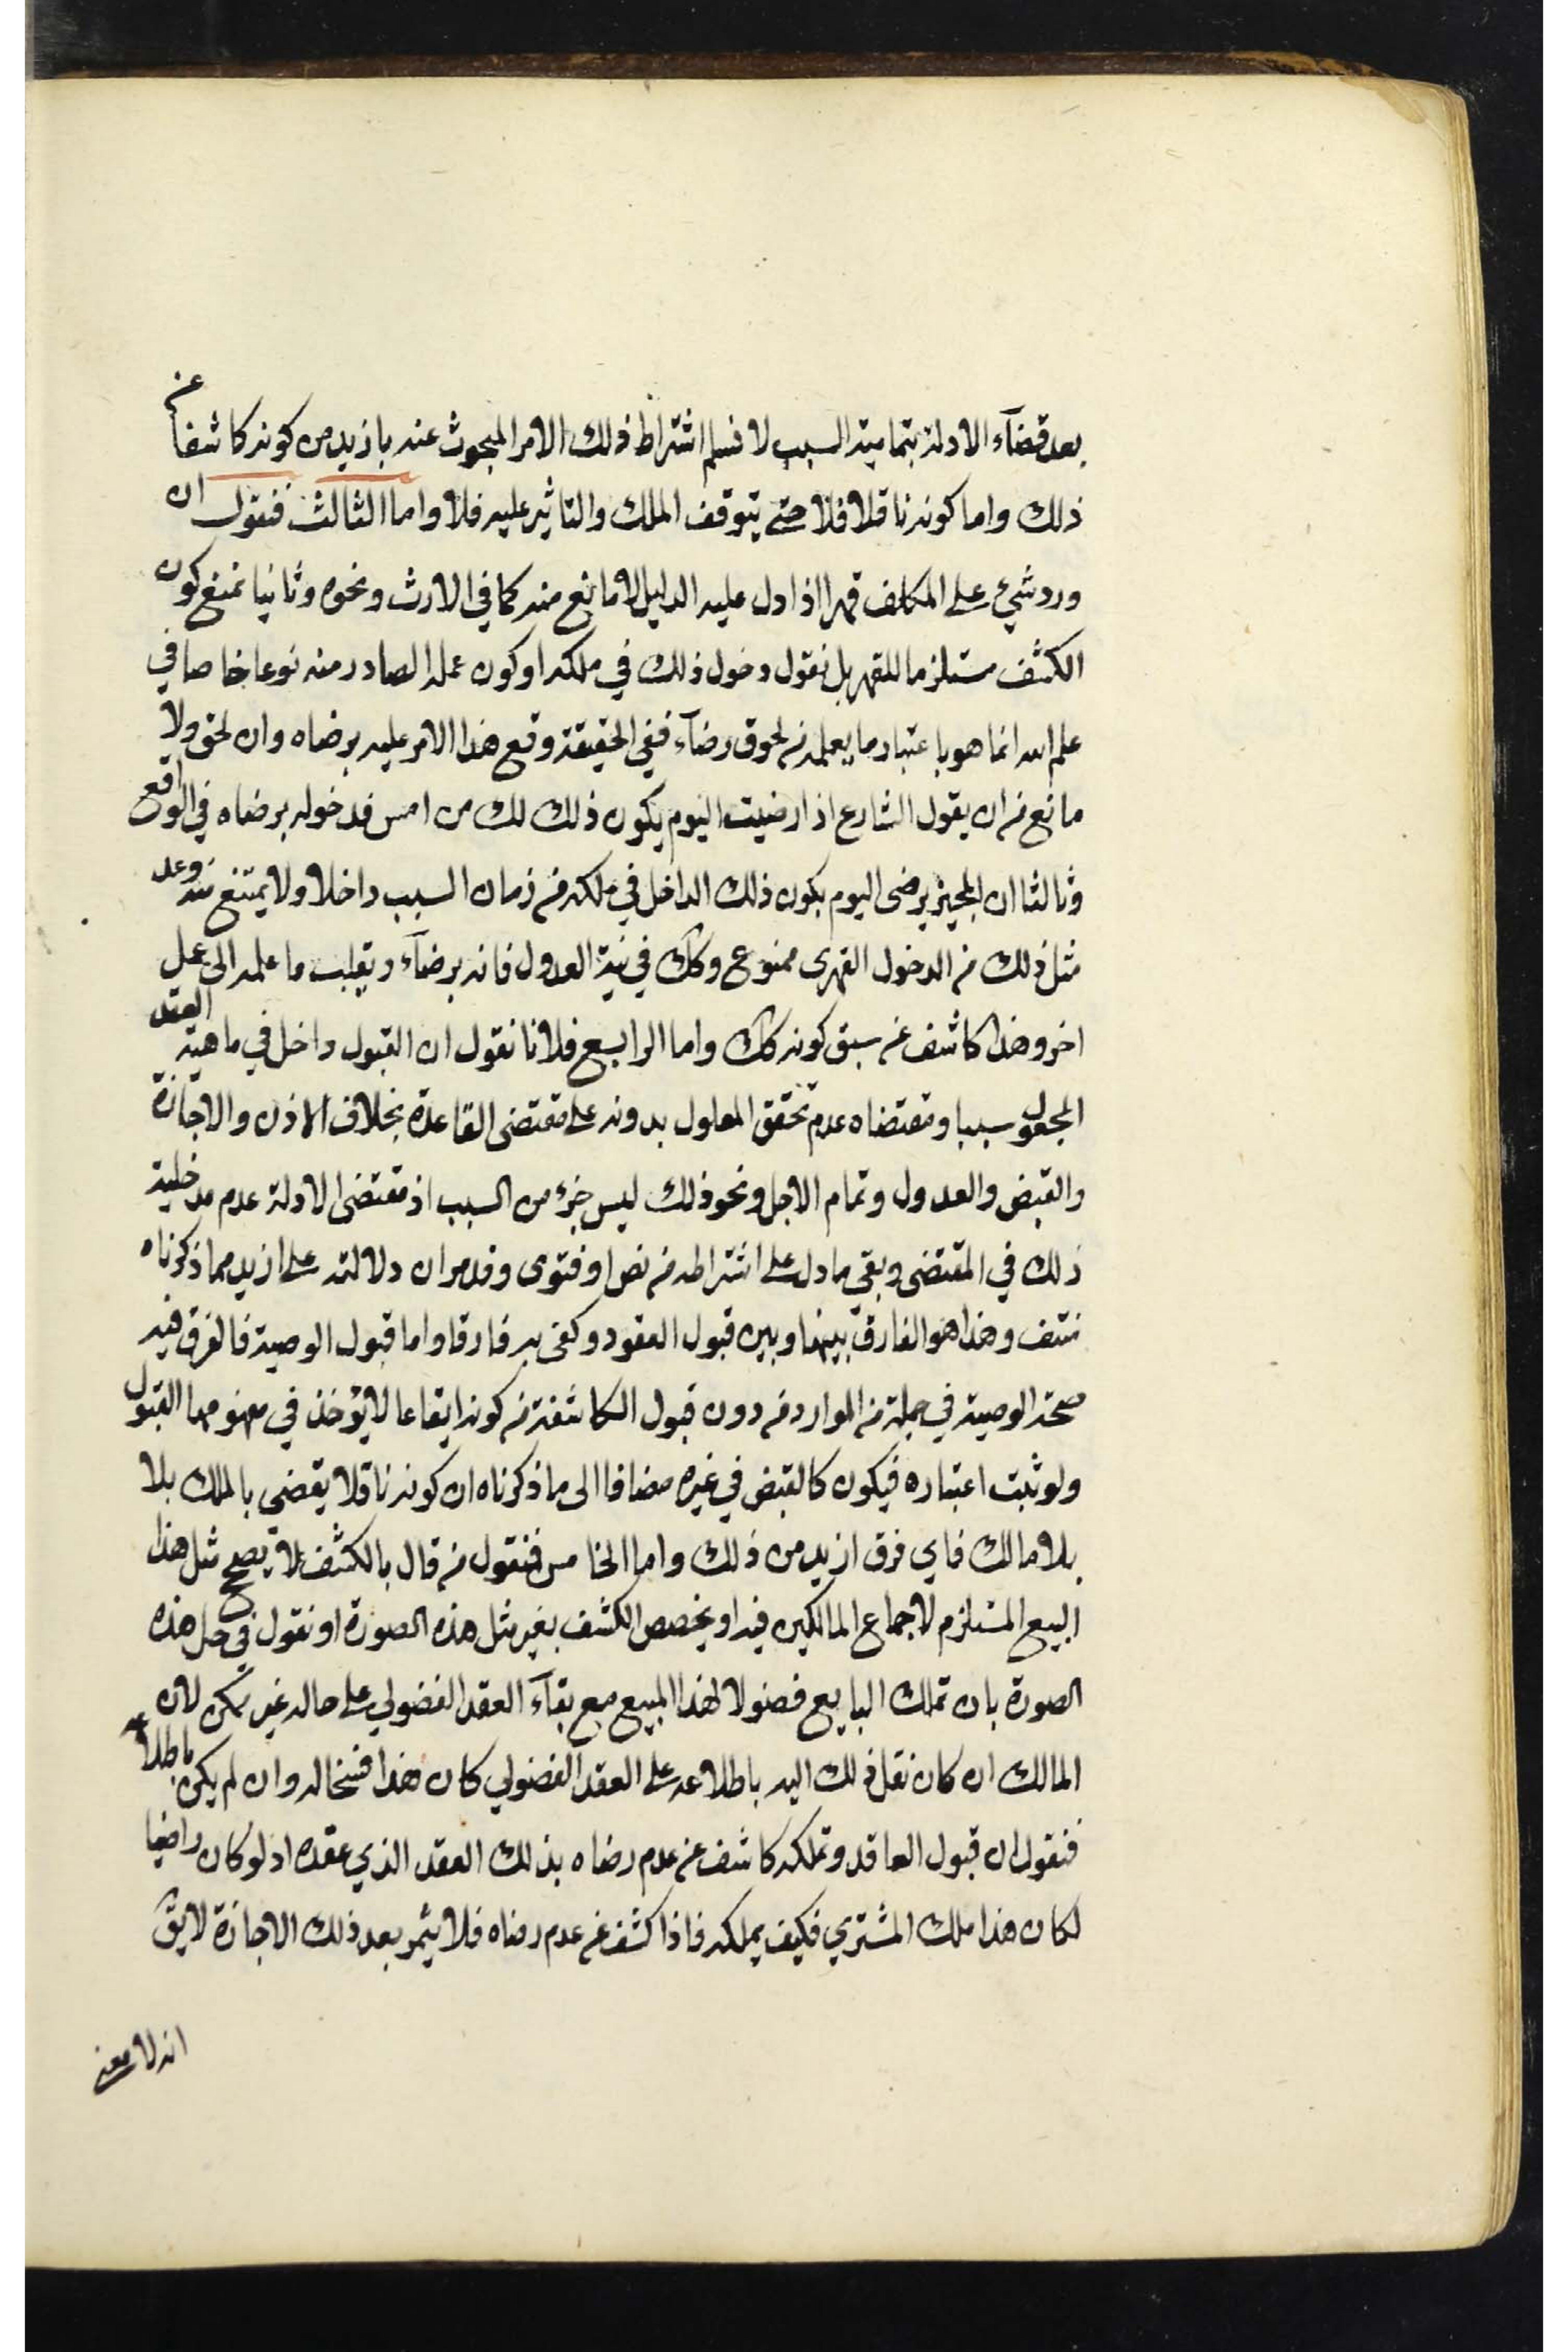 بعد قضآء الادلة بتمامية السبب لا نسلم اشتراط ذلك الامر المبحوث عنه بازيد من كونه كاشفا عن
ذلك واما كونه ناقلا فلا حتى يتوقف الملك والتاثير عليه فلا واما الثالث فنقول ان
ورد شيء على المكلف قهرا اذا دل عليه الدليل لا مانع منه كما في الارث ونحوه وثانيا نمنع كون
الكشف مستلزما للقهر بل نقول دخول ذلك في ملكه او كون عمله الصادر منه نوعا خاصا في
علم الله انما هو باعتبار ما يعلمه من لحوق رضآء ففي الحقيقة وقع هذا الامر عليه برضاه وان لحق ولا
مانع من ان يقول الشارع اذا رضيت اليوم يكون ذلك لك من امس فدخوله برضاه في الواقع
وثالثا ان المجيز يرضى اليوم بكون ذلك الداخل في ملكه من زمان السبب داخلا ولا يمتنع منه وعد
مثل ذلك من الدخول القهرى ممنوع وكك في نية العدول فانه برضآء ويقلب ما علمه الى عمل
اخر وهذا كاشف عن سبق كونه كك واما الرابع فلانا نقول ان القبول داخل في ماهية العقد
المجعول سببا ومقتضاه عدم تحقق المعلول بدونه على مقتضى القاعدة بخلاف الاذن والاجازة
والقبض والعدول وتمام الاجل ونحو ذلك ليس جزء من السبب اذ مقتضى الادلة عدم مدخلية
ذلك في المقتضى وبقى ما دل على اشتراطه من نص او فتوى وقد مر ان دلالته على ازيد مما ذكرناه
منتف وهذا هو الفارق بينها وبين قبول العقود وكفى به فارقا واما قبول الوصية فالفرق فيه
صحة الوصية في جملة من الموارد من دون قبول الكاشفة من كونه ايقاعا لا يؤخذ في مفهومها القبول
ولو ثبت اعتباره فيكون كالقبض في غيره مضافا الى ما ذكرناه ان كونه ناقلا يقضي بالملك بلا
بلا مالك فاي فرق ازيد من ذلك واما الخامس فنقول من قال بالكشف لا يصح مثل هذا
البيع المستلزم لاجماع المالكين فيه او يخصص الكشف بغير مثل هذه الصورة او نقول في حل هذه
الصورة بان تملك البايع فضولا لهذا المبيع مع بقآء العقد الفضولي على حاله غير ممكن لان
المالك ان كان نقل ذلك اليه باطلاعه على العقد الفضولي كان هذا فسخا له وان لم يكن باطلاعه
فنقول ان قبول العاقد وتملكه كاشف عن عدم رضاه بذلك العقد الذي عقده اذ لو كان راضيا
لكان هذا ملك المشتري فكيف يملكه فاذا كشف عن عدم رضاه فلا يثمر بعد ذلك الاجازة لا يق
انه لا معنى